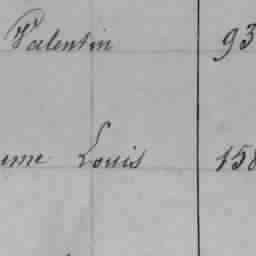 Valentin 93
Louis 158